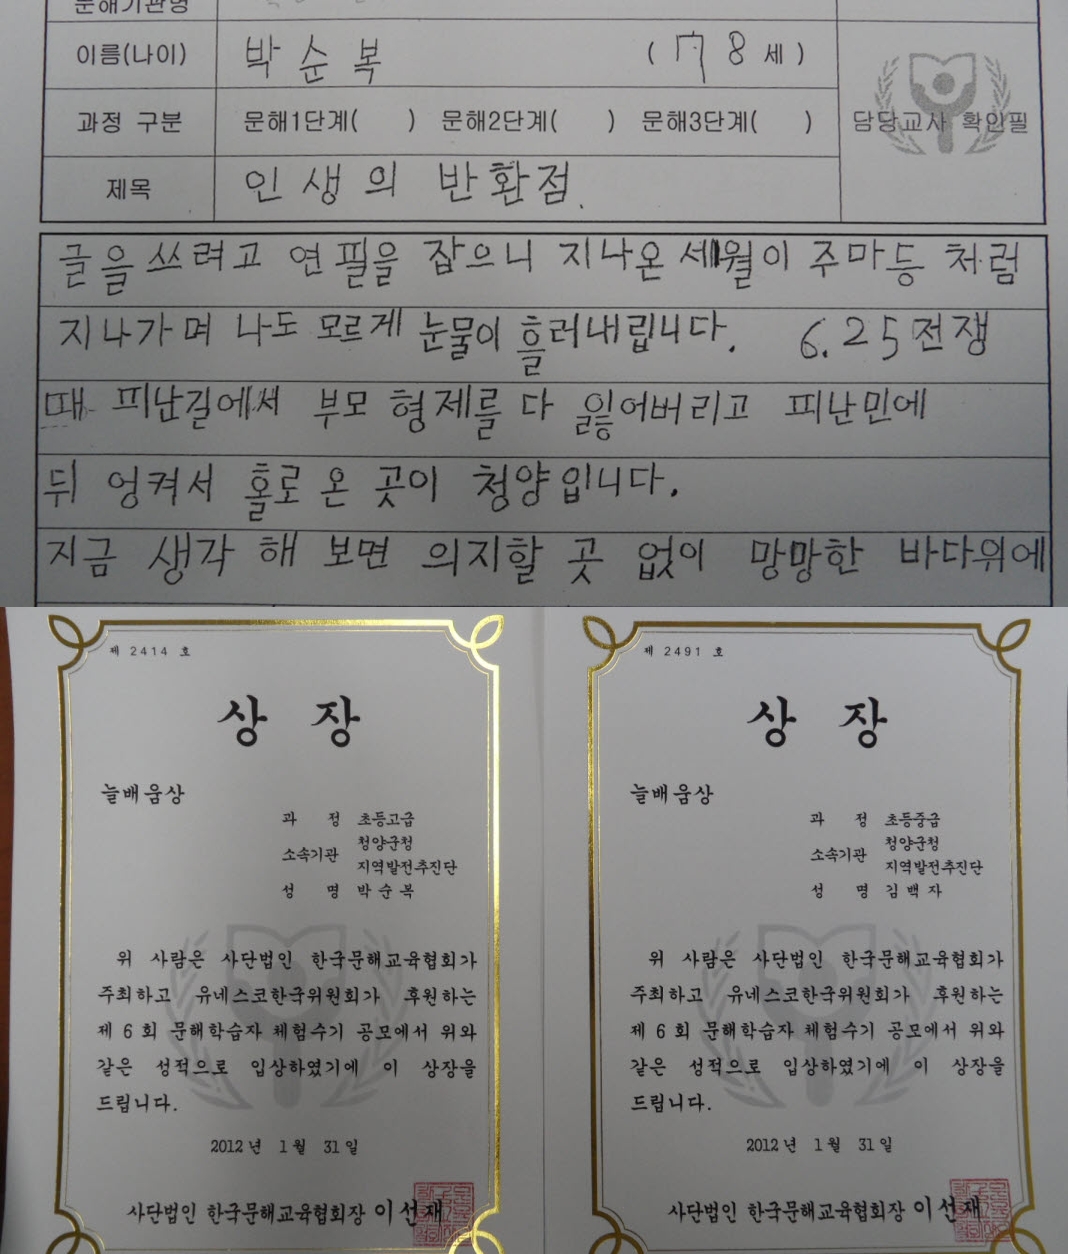 문해기관명
이름(나이) 박순복 (78세)
과정 구분 문해1단계( ) 문해2단계( ) 문해3단계( ) 담당교사 확인필
제목 인생의 반환점.
글을 쓰려고 연필을 잡으니 지나온 세월이 주마등 처럼
지나가며 나도 모르게 눈물이 흘러내립니다. 6.25전쟁
때 피난길에서 부모 형제를 다 잃어버리고 피난민에
뒤 엉켜서 홀로 온 곳이 청양입니다.
지금 생각 해 보면 의지할 곳 없이 망망한 바다위에
제 2414 호
상 장
늘배움상
과 정 초등고급
소속기관 청양군청
지역발전추진단
성 명 박순복
위 사람은 사단법인 한국문해교육협회가
주최하고 유네스코한국위원회가 후원하는
제 6 회 문해학습자 체험수기 공모에서 위와
같은 성적으로 입상하였기에 이 상장을
드립니다.
2012년 1월 31일
사단법인 한국문해교육협회장 이선재
제 2491 호
상 장
늘배움상
과 정 초등중급
소속기관 청양군청
지역발전추진단
성 명 김백자
위 사람은 사단법인 한국문해교육협회가
주최하고 유네스코한국위원회가 후원하는
제 6 회 문해학습자 체험수기 공모에서 위와
같은 성적으로 입상하였기에 이 상장을
드립니다.
2012년 1월 31일
사단법인 한국문해교육협회장 이선재